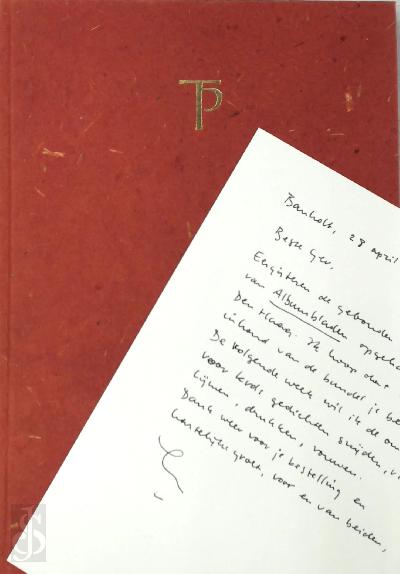 TP
Banholt, 28 april
Beste Ger,
Eergisteren de gebonden
van Albumbladen opgeha
Den Haag. Ik hoop dat
inhoud van de bundel je be
De volgende week wil ik de om
voor Kerds gedichten snijden, ri
lijmen, drukken, vouwen.
Dank weer voor je bestelling en
hartelijke groet, voor en van beiden,